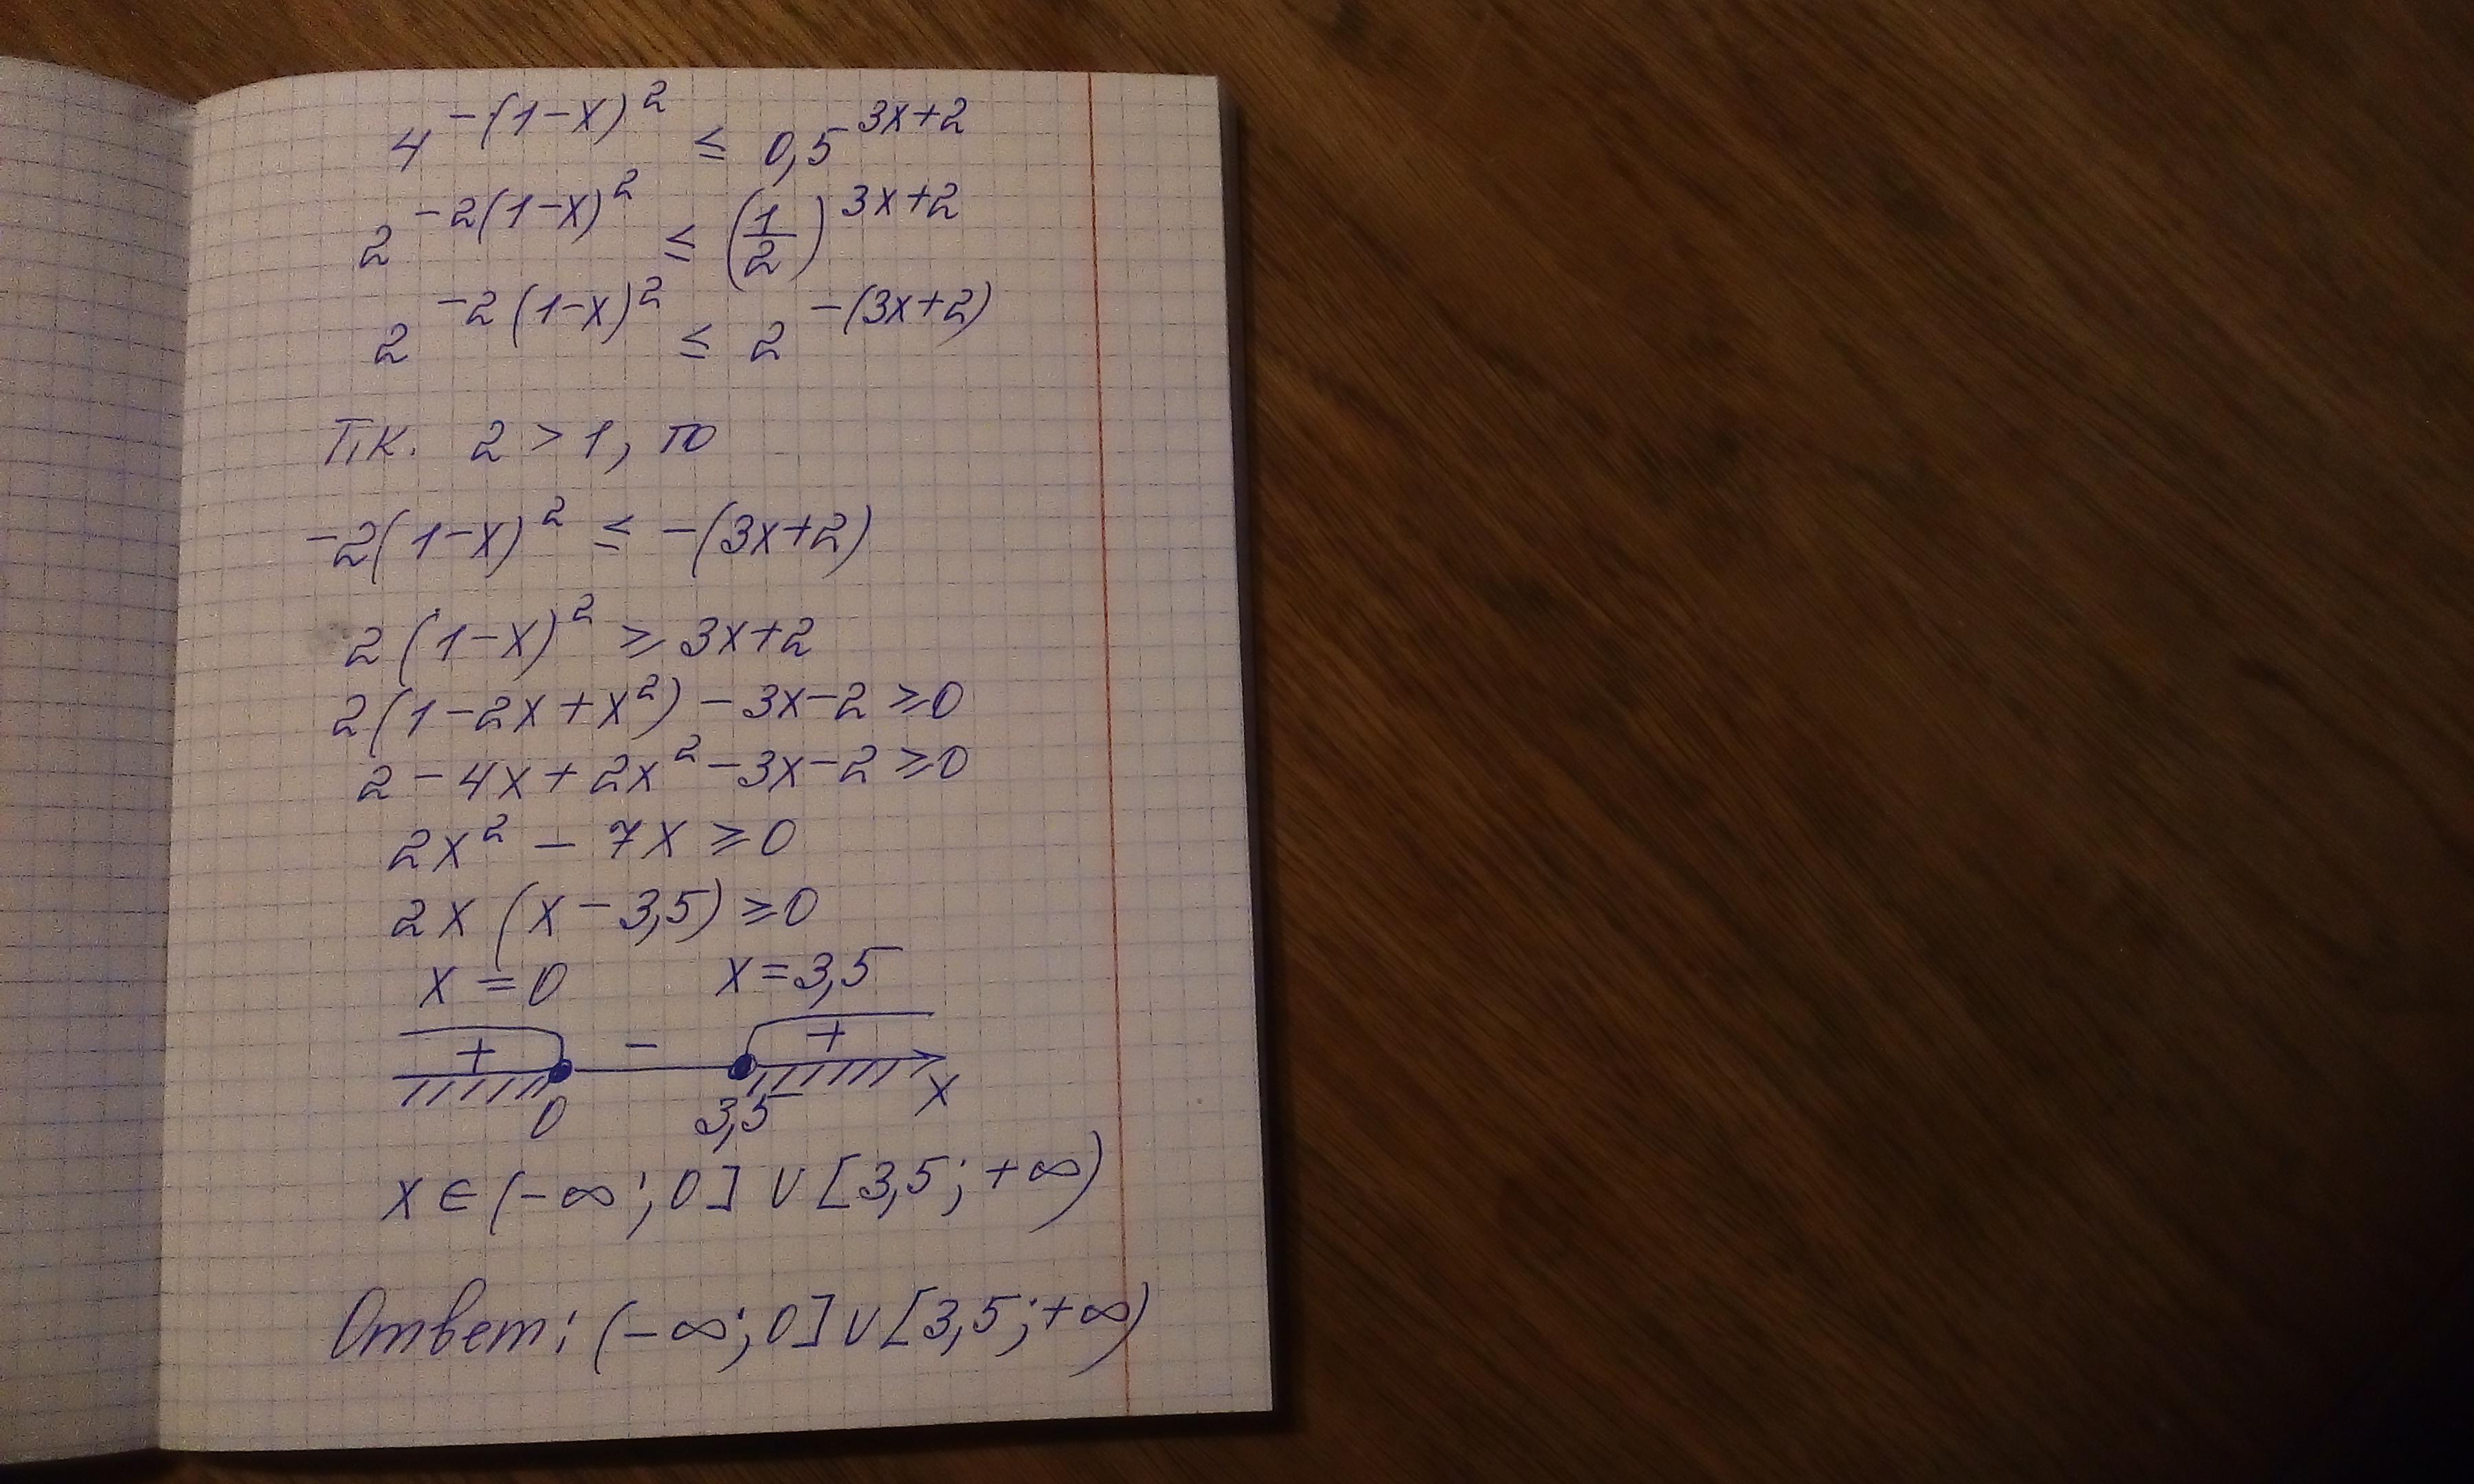 4^{-(1-x)^2} ≤ 0,5^{3x+2}
2^{-2(1-x)^2} ≤ (1/2)^{3x+2}
2^{-2(1-x)^2} ≤ 2^{-(3x+2)}
Т.к. 2 > 1, то
-2(1-x)^2 ≤ -(3x+2)
2(1-x)^2 ≥ 3x+2
2(1-2x+x^2) - 3x - 2 ≥ 0
2 - 4x + 2x^2 - 3x - 2 ≥ 0
2x^2 - 7x ≥ 0
2x (x - 3,5) ≥ 0
x = 0 x = 3,5
+ - +
0 3,5 x
x ∈ (-∞; 0] ∪ [3,5; +∞)
Ответ: (-∞; 0] ∪ [3,5; +∞)